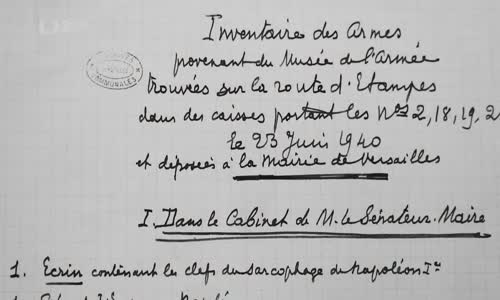 Inventaire des Armes
provenant du Musée de l'Armée
trouvées sur la route d'Etampes
dans des caisses portant les Nos 2, 18, 19, 2
le 23 Juin 1940
et déposées à la Mairie de Versailles
COMMUNALES
I. Dans le Cabinet de M. le Sénateur-Maire
1. Ecrin contenant les clefs du sarcophage de Napoléon Ier